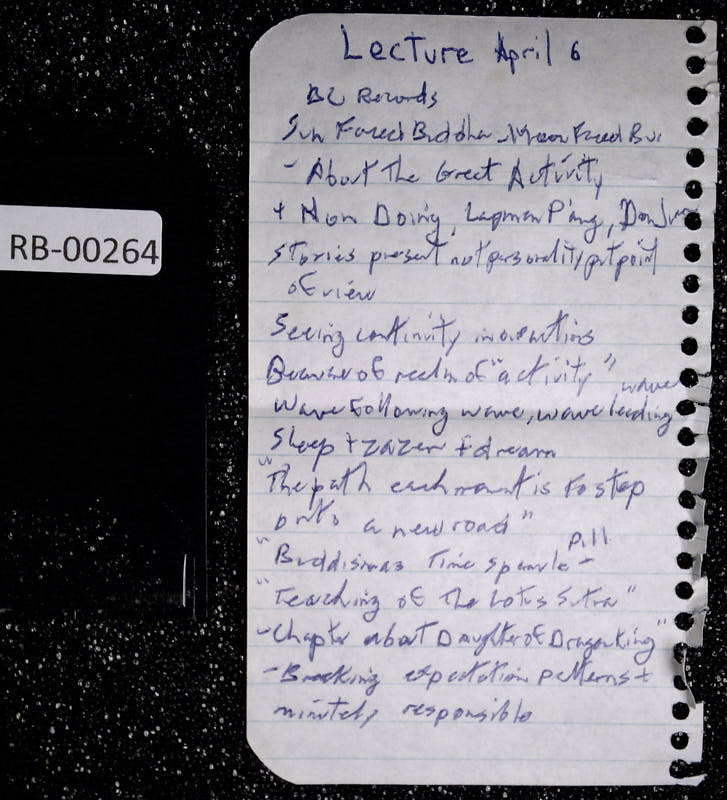 Lecture April 6
BC Records
Sun Faced Buddha Moon Faced Bu
RB-00264
- About The Great Activity
+ Non Doing, Layman P'ang, Don Juan
stories present not personality but point
of view
Seeing continuity in our actions
Because of realm of "activity"
wave
wave Following wave, wave leading
Sleep + zazen + dream
"The path each moment is to step
onto a new road"
"Buddism as Time Spansule - pill
"Teaching of The Lotus Sutra"
- Chapter about Daughter of Dragon King"
- Breaking expectation patterns +
minutely responsible